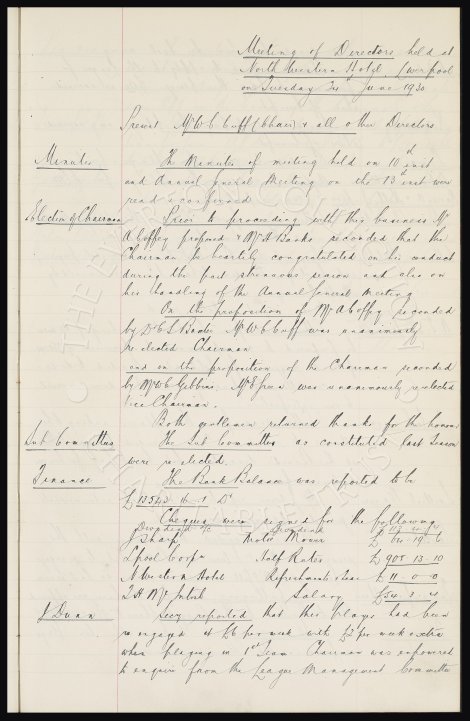 Meeting of Directors held at
North Western Hotel, Liverpool
on Tuesday June 1930
Present Mr W C Cuff (Chair) & all other Directors
Minutes The Minutes of meeting held on 10th inst
and Annual General Meeting on the 13th inst were
read & confirmed
Election of Chairman Prior to proceeding with this business Mr
A Coffey proposed & Mr A Banks seconded that the
Chairman be heartily congratulated on his conduct
during the past strenuous season and also on
his handling of the Annual General Meeting
On the proposition of Mr A Coffey seconded
by Dr C S Baxter Mr W C Cuff was unanimously
re elected Chairman
and on the proposition of the Chairman seconded
by Mr W C Gibbins Mr E Green was unanimously re elected
Vice Chairman.
Both gentlemen returned thanks for the honour
Sub Committees The Sub Committees as constituted last season
were re elected.
Finance The Bank Balance was reported to be
£13543 Dr
Cheques were signed for the following
J Sharp Motor Mower
L'pool Corp'n Half Rates £ 905 13 10
N Western Hotel Refreshments £ 11 0 0
T H McIntosh Salary
J Dunn Secy reported that this player had been
re engaged at £6 per week with £2 per week extra
when playing in 1st Team. Chairman was empowered
to enquire from the League Management Committee
THE EVERTON COLLECTION CHARITABLE TRUST